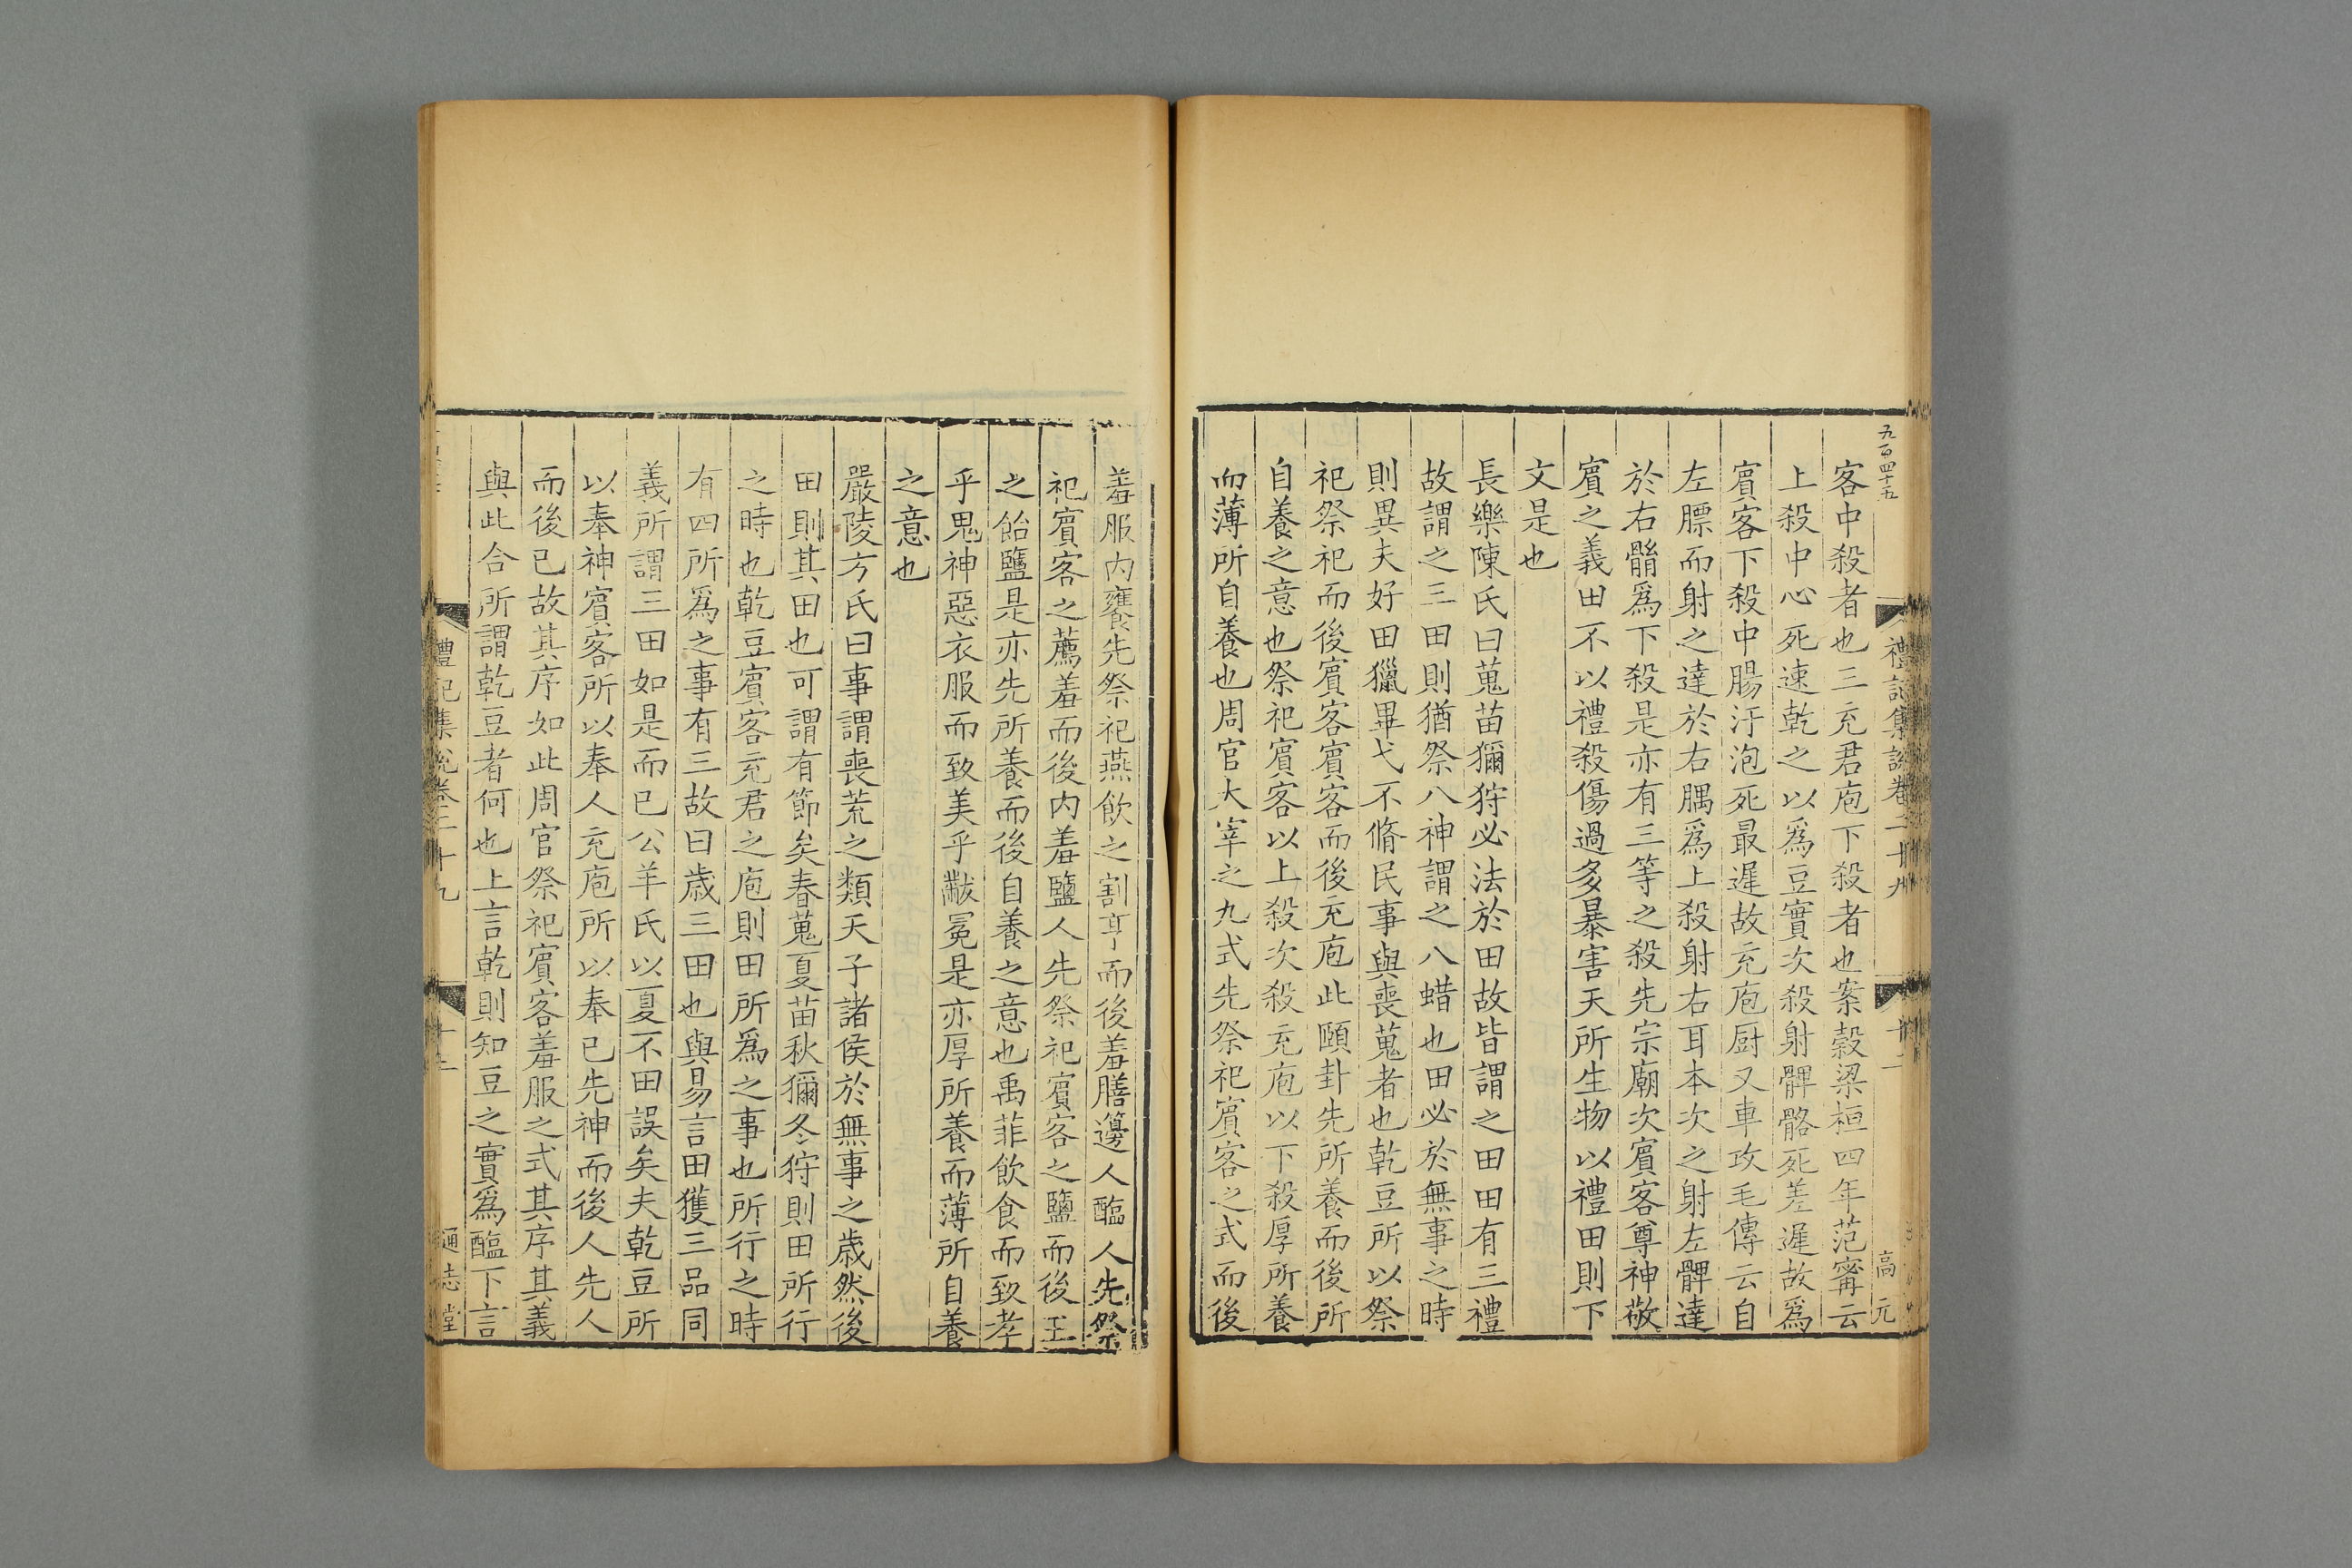 九百四十五
禮記集說卷二十九
高元
客中殺者也三充君庖下殺者也案穀梁桓四年范甯云
上殺中心死速乾之以爲豆實次殺射髀髂死差遲故爲
賓客下殺中腸汙泡死最遲故充庖厨又車攻毛傳云自
左膘而射之達於右腢爲上殺射右耳本次之射左髀達
於右䯚爲下殺是亦有三等之殺先宗廟次賓客尊神敬
賓之義田不以禮殺傷過多暴害天所生物以禮田則下
文是也
長樂陳氏曰蒐苗獮狩必法於田故皆謂之田田有三禮
故謂之三田則猶祭八神謂之八蜡也田必於無事之時
則異夫好田獵畢弋不脩民事與喪蒐者也乾豆所以祭
祀祭祀而後賓客賓客而後充庖此頤卦先所養而後所
自養之意也祭祀賓客以上殺次殺充庖以下殺厚所養
而薄所自養也周官大宰之九式先祭祀賓客之式而後
羞服內饔先祭祀燕飮之割亨而後羞膳籩人醢人先祭
祀賓客之薦羞而後內羞鹽人先祭祀賓客之鹽而後王
之飴鹽是亦先所養而後自養之意也禹菲飮食而致孝
乎鬼神惡衣服而致美乎黻冕是亦厚所養而薄所自養
之意也
嚴陵方氏曰事謂喪荒之類天子諸侯於無事之歲然後
田則其田也可謂有節矣春蒐夏苗秋獮冬狩則田所行
之時也乾豆賓客充君之庖則田所爲之事也所行之時
有四所爲之事有三故曰歲三田也與易言田獲三品同
義所謂三田如是而已公羊氏以夏不田誤矣夫乾豆所
以奉神賓客所以奉人充庖所以奉己先神而後人先人
而後己故其序如此周官祭祀賓客羞服之式其序其義
與此合所謂乾豆者何也上言乾則知豆之實爲醢下言
禮記集說卷二十九
通志堂